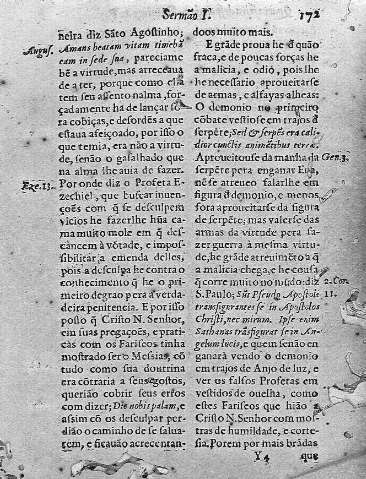 Sermão I. 172
neira diz Sãto Agostinho;
August. Amans beatam vitam timebã
eam in sede sua, pareciame
bẽ a virtude, mas arreceaua
de a ter, porque como ella
tem seu assento nalma, for-
çadamente ha de lançar fo
ra cobiças, e desordẽs a que
estaua afeiçoado, por isso o
que temia, era não a virtu-
de, senão o gasalhado que
na alma lhe auia de fazer.
Eze. 13. Por onde diz o Profeta E-
zechiel, que buscar inuen-
ções com q̃ se desculpem
vicios he fazerlhe hũa ca-
ma muito mole em q̃ des-
cãncem à võtade, e impos-
sibilitar a emenda delles,
pois a desculpa he contra o
conhecimento q̃ he o pri-
meiro degrao pera a verda-
deira penitencia. E por isso
posto q̃ Cristo N. Senhor,
em suas pregações, e prati-
cas com os Fariseos tinha
mostrado ser o Messias, cõ
tudo como sua doutrina
era cõtraria a seus gostos,
querião cobrir seus erros
com dizer; Dic nobis palam, e
assim cõ os desculpar per-
dião o caminho de se salua-
rem, e ficauão acrecentan-
doos muito mais.
E grãde proua he ð quão
fraca, e de poucas forças he
a malicia, e odio, pois lhe
he necessario aproueitarse
de armas, e alfayas alheas:
O demonio no primeiro
cõbate vestiose em trajos ð
serpẽte; Sed & serpẽs era cali-
dior cunctis animãtibus terræ.
Aproueitouse da manha da Gen. 3.
serpẽte pera enganar Eua,
nẽ se atreueo falarlhe em
figura ð demonio, e menos
fora aproueitarse da figura
de serpẽte; mas valerse das
armas da virtude pera fa-
zer guerra à mesma virtu-
de, he grãde atreuimẽto a q̃
a malicia chega, e he cousa
q̃ corre muito no mũdo: diz 2. Cor.
S. Paulo; Sũt Pseudo Apostole 11.
transfigurantes se in Apostolos
Christi, nec mirum. Ipse enim
Sathanas trãsfigurat se in An-
gelum lucis, e quem senão en
ganará vendo o demonio
em trajos de Anjo de luz, e
ver os falsos Profetas em
vestidos de ouelha, como
estes Fariseos que hião a
Cristo N. Senhor com mos-
tras de humildade, e corte-
sia. Porem por mais brãdas
Y 4 que